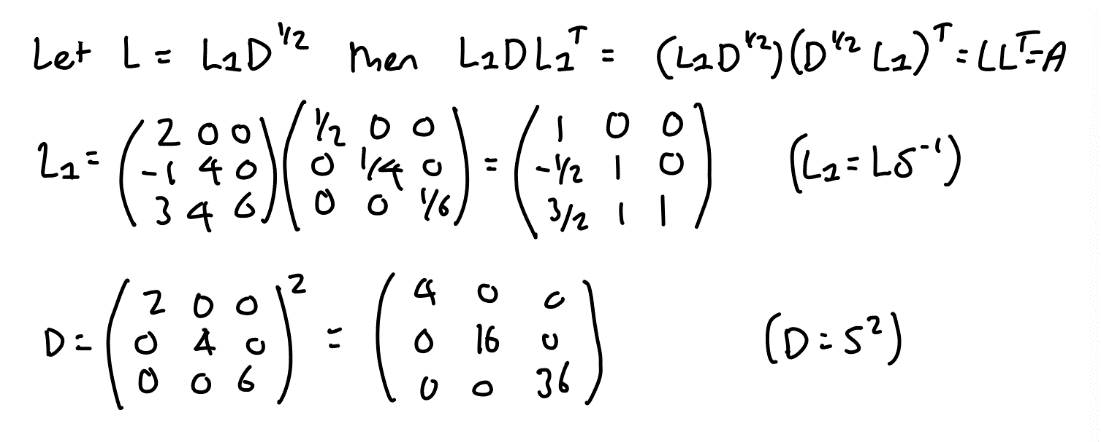 Let L = L₁D^{1/2} then L₁DL₁^T = (L₁D^{1/2})(D^{1/2} L₁)^T = LL^T = A
L₁ = \begin{pmatrix} 2 & 0 & 0 \\ -1 & 4 & 0 \\ 3 & 4 & 6 \end{pmatrix} \begin{pmatrix} 1/2 & 0 & 0 \\ 0 & 1/4 & 0 \\ 0 & 0 & 1/6 \end{pmatrix} = \begin{pmatrix} 1 & 0 & 0 \\ -1/2 & 1 & 0 \\ 3/2 & 1 & 1 \end{pmatrix} (L₁ = LS^{-1})
D = \begin{pmatrix} 2 & 0 & 0 \\ 0 & 4 & 0 \\ 0 & 0 & 6 \end{pmatrix}^2 = \begin{pmatrix} 4 & 0 & 0 \\ 0 & 16 & 0 \\ 0 & 0 & 36 \end{pmatrix} (D = S²)